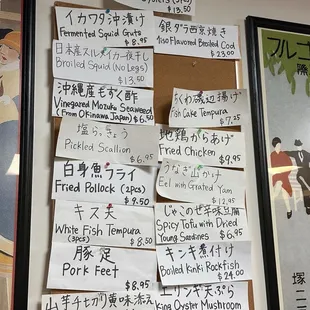 Oysters (3pcs)
$13.50
イカワタ沖漬け
Fermented Squid Guts
$8.95
日本産スルメイカ一夜干し
Broiled Squid (No Legs)
$13.50
沖縄産もずく酢
Vinegared Mozuku Seaweed
(From Okinawa Japan) $6.50
塩らっきょう
Pickled Scallion
$6.95
白身魚フライ
Fried Pollock (2pcs)
$9.50
キス天
White Fish Tempura
(3pcs)
$8.50
豚足
Pork Feet
$8.95
山芋千切り黄味添え
銀ダラ西京焼き
Miso Flavored Broiled Cod
$23.00
ちくわ磯辺揚げ
Fish Cake Tempura
$7.25
地鶏からあげ
Fried Chicken
$9.95
うなぎ山かけ
Eel with Grated Yam
$12.95
じゃこのせ辛味豆腐
Spicy Tofu with Dried
Young Sardines
$6.95
キンキ煮付け
Boiled Kinki Rockfish
$24.00
エリンギ天ぷら
King Oyster Mushroom
フルコ
塚
二